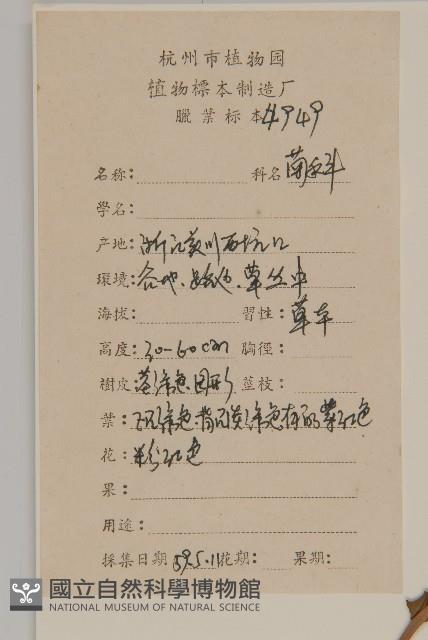 杭州市植物园
植物標本制造厂
臘葉标本4949
名称: 科名
学名:
产地: 浙江
環境: 谷地、草丛中
海拔: 習性: 草本
高度: 30-60cm 胸徑:
樹皮: 圆形 莖枝:
葉: 绿色 背面淡绿色有的紫红色
花: 粉红色
果:
用途:
採集日期 59.5.11 花期: 果期:
國立自然科學博物館
NATIONAL MUSEUM OF NATURAL SCIENCE